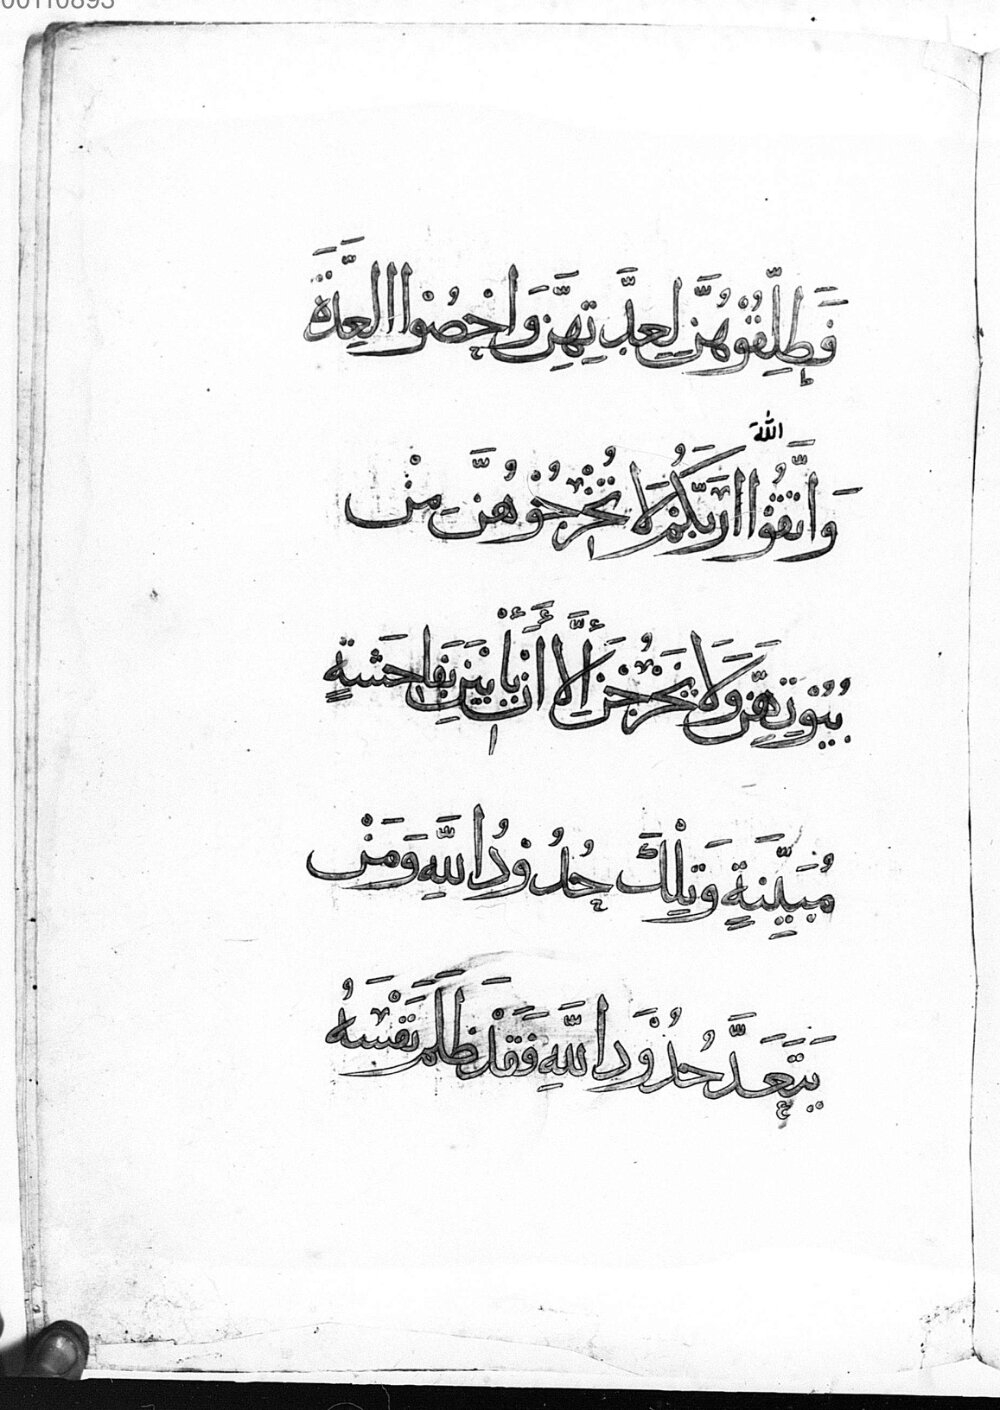 00110893
فَطَلِّقُوْهُنَّ لِعِدَّتِهِنَّ وَاَحْصُوْا الْعِدَّةَ
اللّٰهَ
وَاتَّقُوْا رَبَّكُمْ لَا تُخْرِجُوْهُنَّ مِنْ
بُيُوْتِهِنَّ وَلَا يَخْرُجْنَ إِلَّا أَنْ يَأْتِيْنَ بِفَاحِشَةٍ
مُبَيِّنَةٍ وَتِلْكَ حُدُودُ اللّٰهِ وَمَنْ
يَتَعَدَّ حُدُوْدَ اللّٰهِ فَقَدْ ظَلَمَ نَفْسَهُ